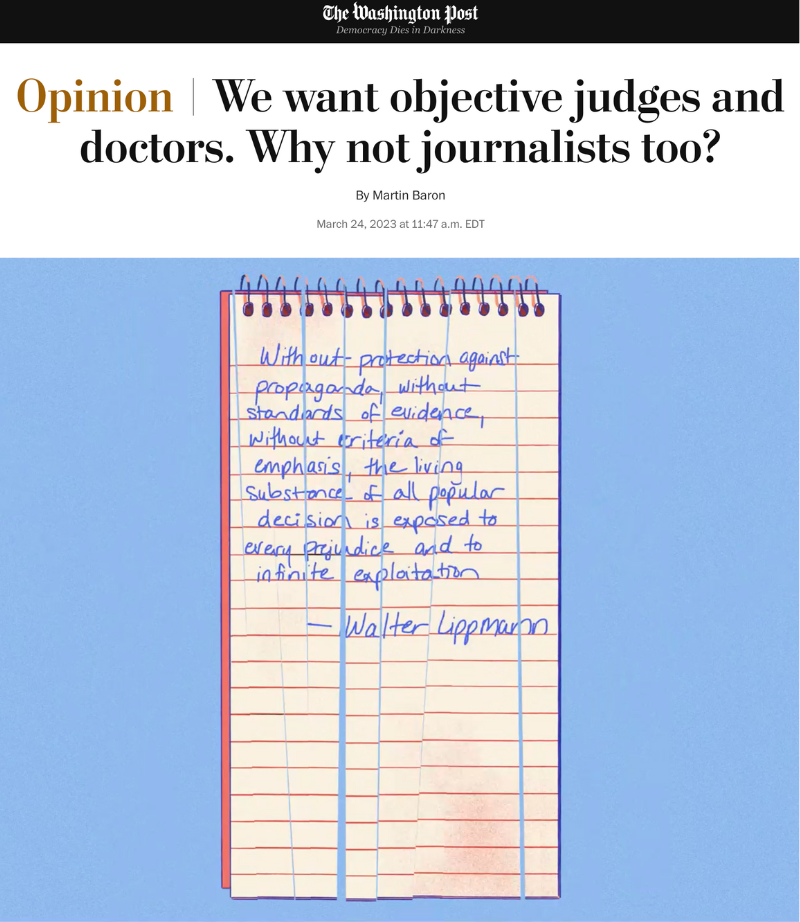 The Washington Post
Democracy Dies in Darkness
Opinion | We want objective judges and
doctors. Why not journalists too?
By Martin Baron
March 24, 2023 at 11:47 a.m. EDT
Without protection against
propaganda, without
standards of evidence,
without criteria of
emphasis, the living
substance of all popular
decision is exposed to
every prejudice and to
infinite exploitation
— Walter Lippmann